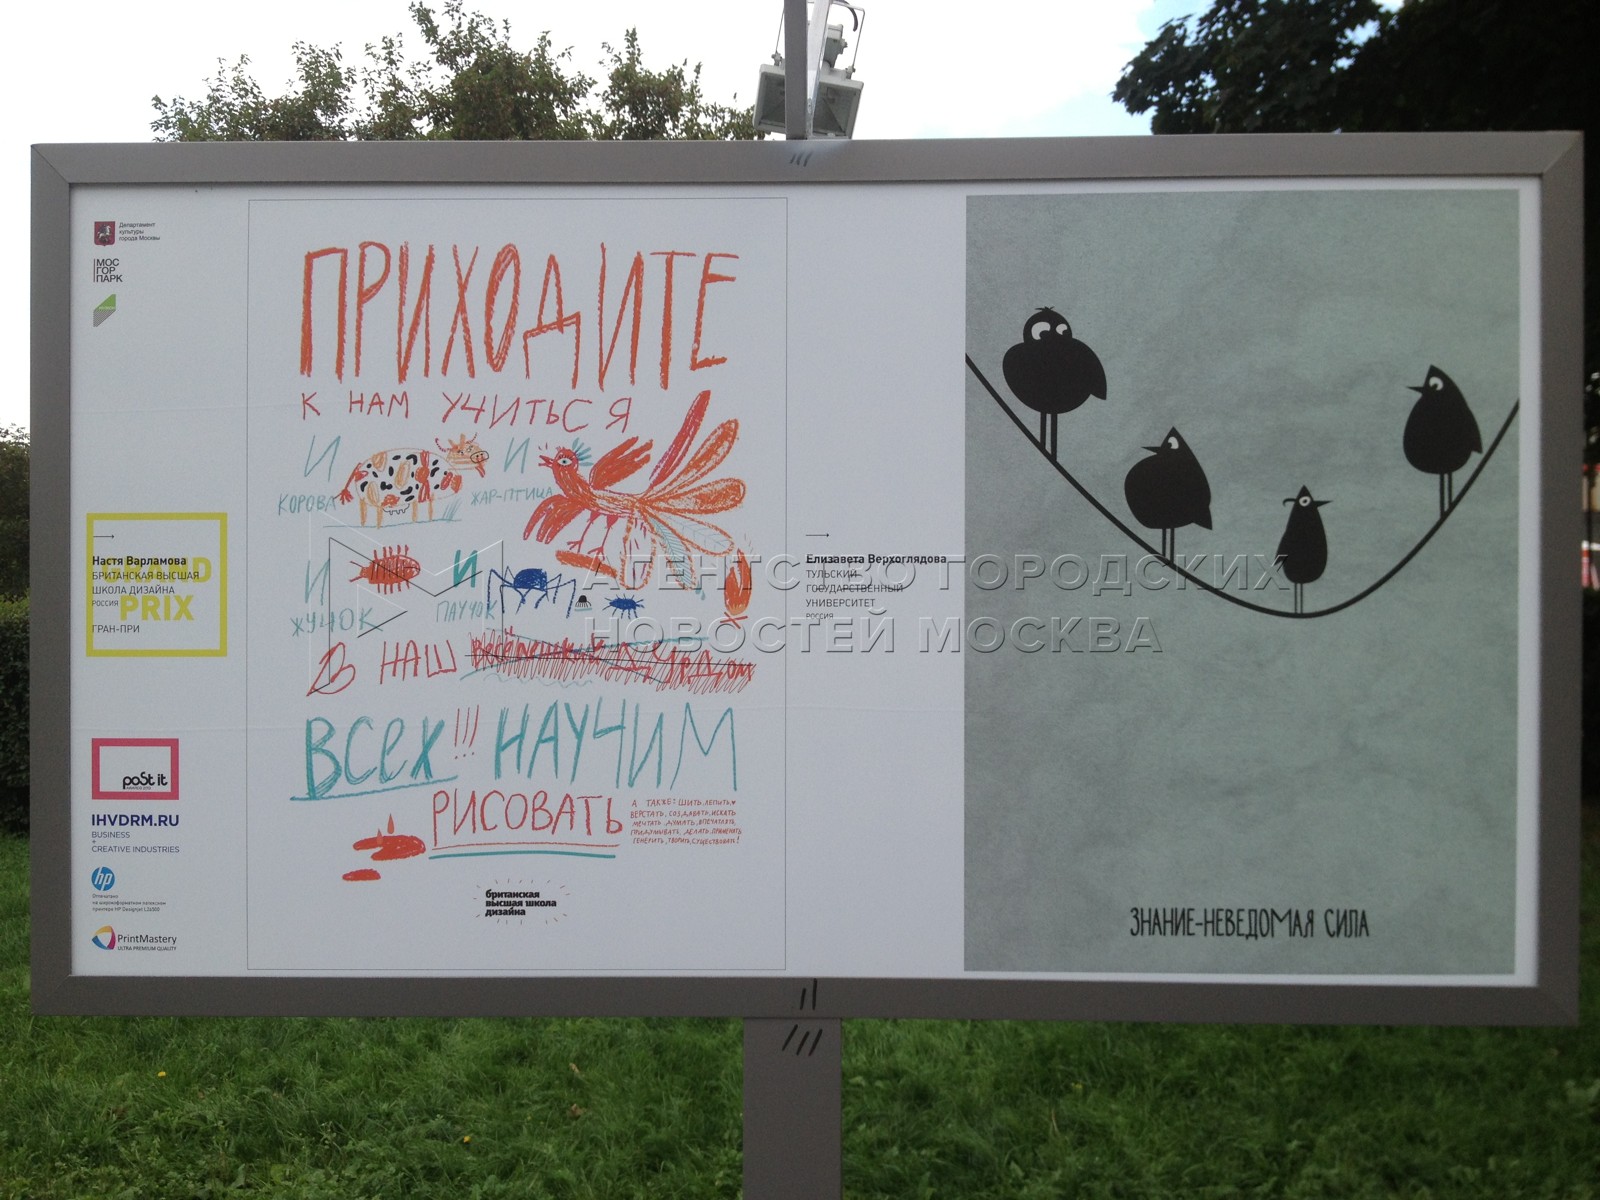 Департамент
культуры
города Москвы
МОС
ГОР
ПАРК
GRAND
PRIX
Настя Варламова
БРИТАНСКАЯ ВЫСШАЯ
ШКОЛА ДИЗАЙНА
РОССИЯ
ГРАН-ПРИ
poSt it
AWARDS 2013
IHVDRM.RU
BUSINESS
+
CREATIVE INDUSTRIES
hp
Отпечатано
на широкоформатном латексном
принтере HP Designjet L26500
PrintMastery
ULTRA PREMIUM QUALITY
ПРИХОДИТЕ
К НАМ УЧИТЬСЯ
И И
КОРОВА ЖАР-ПТИЦА
И И
ЖУЧОК ПАУЧОК
В НАШ
ВСЕХ!!! НАУЧИМ
РИСОВАТЬ
А ТАКЖЕ: ШИТЬ, ЛЕПИТЬ,
ВЕРСТАТЬ, СОЗДАВАТЬ, ИСКАТЬ
МЕЧТАТЬ, ДУМАТЬ, ВПЕЧАТЛЯТЬ,
ПРИДУМЫВАТЬ, ДЕЛАТЬ, ПРИМЕНЯТЬ
ГЕНЕРИТЬ, ТВОРИТЬ, СУЩЕСТВОВАТЬ!
британская
высшая школа
дизайна
Елизавета Верхоглядова
ТУЛЬСКИЙ
ГОСУДАРСТВЕННЫЙ
УНИВЕРСИТЕТ
РОССИЯ
ЗНАНИЕ-НЕВЕДОМАЯ СИЛА
АГЕНТСТВО ГОРОДСКИХ
НОВОСТЕЙ МОСКВА